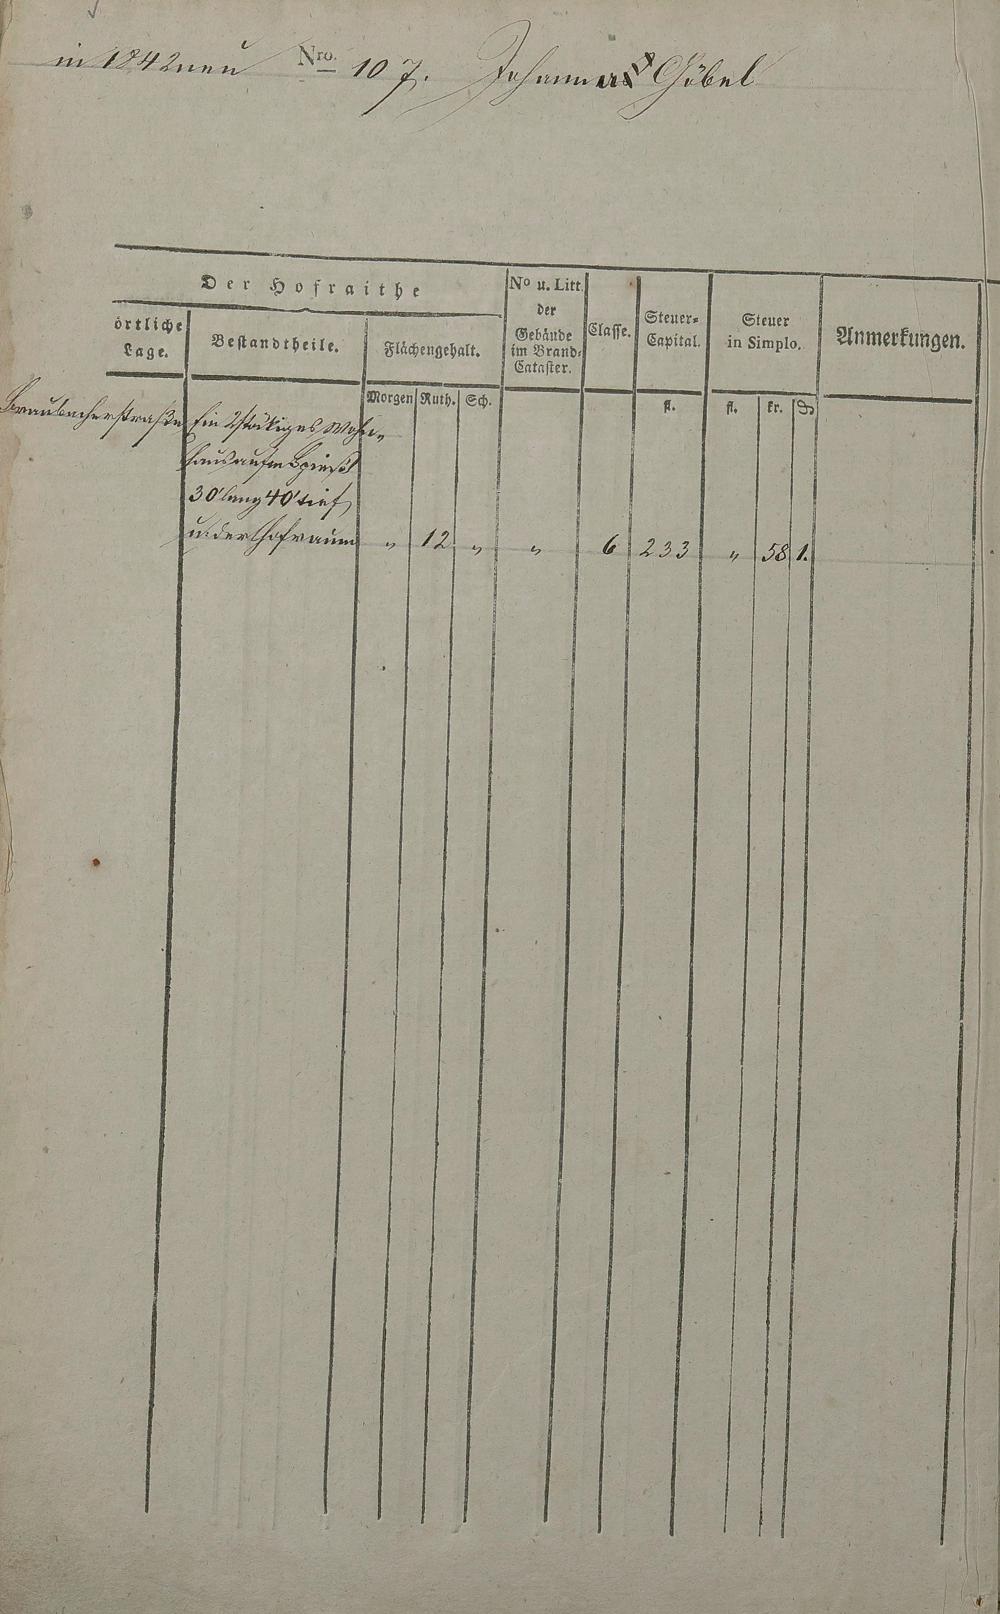 in 1842 neu Nro. 107. Johannes Göbel
Der Hofraithe
örtliche Lage.
Bestandtheile.
Flächengehalt.
Morgen Ruth. Sch.
No u. Litt. der Gebäude im Brand-Cataster.
Classe.
Steuer-Capital.
fl.
Steuer in Simplo.
fl. kr. ₰
Anmerkungen.
Braubacherstraße Ein 2stökiges Wohn-
haus aufm
30' lang 40' tief
u. der Hofraum " 12 " " 6 233 " 58 1.